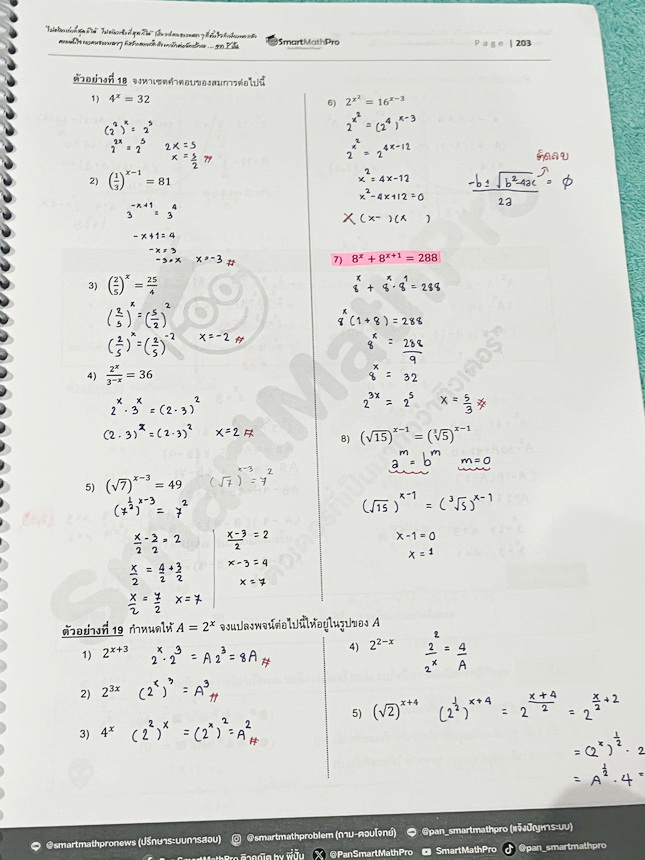 SmartMathPro
Page | 203
ตัวอย่างที่ 18 จงหาเซตคำตอบของสมการต่อไปนี้
1) 4^x = 32
(2^2)^x = 2^5
2^{2x} = 2^5 2x = 5
x = 5/2 #
2) (1/3)^{x-1} = 81
3^{-x+1} = 3^4
-x+1 = 4
-x = 3
-3 = x x = -3 #
3) (2/5)^x = 25/4
(2/5)^x = (5/2)^2
(2/5)^x = (2/5)^{-2} x = -2 #
4) 2^x/3^{-x} = 36
2^x · 3^x = (2·3)^2
(2·3)^x = (2·3)^2 x = 2 #
5) (√7)^{x-3} = 49 (√7)^{x-3} = 7^2
(7^{1/2})^{x-3} = 7^2
x/2 - 3/2 = 2
x/2 = 4/2 + 3/2
x/2 = 7/2 x = 7
(x-3)/2 = 2
x-3 = 4
x = 7
6) 2^{x^2} = 16^{x-3}
2^{x^2} = (2^4)^{x-3}
2^{x^2} = 2^{4x-12}
x^2 = 4x-12
x^2-4x+12 = 0
X (x- )(x )
ติดลบ
(-b ± √(b^2-4ac))/2a = ∅
7) 8^x + 8^{x+1} = 288
8^x + 8^x · 8^1 = 288
8^x (1+8) = 288
8^x = 288/9
8^x = 32
2^{3x} = 2^5 x = 5/3 #
8) (√15)^{x-1} = (∛5)^{x-1}
a^m = b^m m = 0
(√15)^{x-1} = (∛5)^{x-1}
x-1 = 0
x = 1
ตัวอย่างที่ 19 กำหนดให้ A = 2^x จงแปลงพจน์ต่อไปนี้ให้อยู่ในรูปของ A
1) 2^{x+3} 2^x · 2^3 = A 2^3 = 8A #
2) 2^{3x} (2^x)^3 = A^3 #
3) 4^x (2^2)^x = (2^x)^2 = A^2 #
4) 2^{2-x} 2^2/2^x = 4/A
5) (√2)^{x+4} (2^{1/2})^{x+4} = 2^{(x+4)/2} = 2^{x/2+2}
= (2^x)^{1/2} · 2
= A^{1/2} · 4 =
@smartmathpronews (ปรึกษาระบบการสอบ) @smartmathproblem (ถาม-ตอบโจทย์) @pan_smartmathpro (แจ้งปัญหาระบบ)
SmartMathPro ติวคณิต by พี่ปั้น @PanSmartMathPro SmartMathPro @pan_smartmathpro